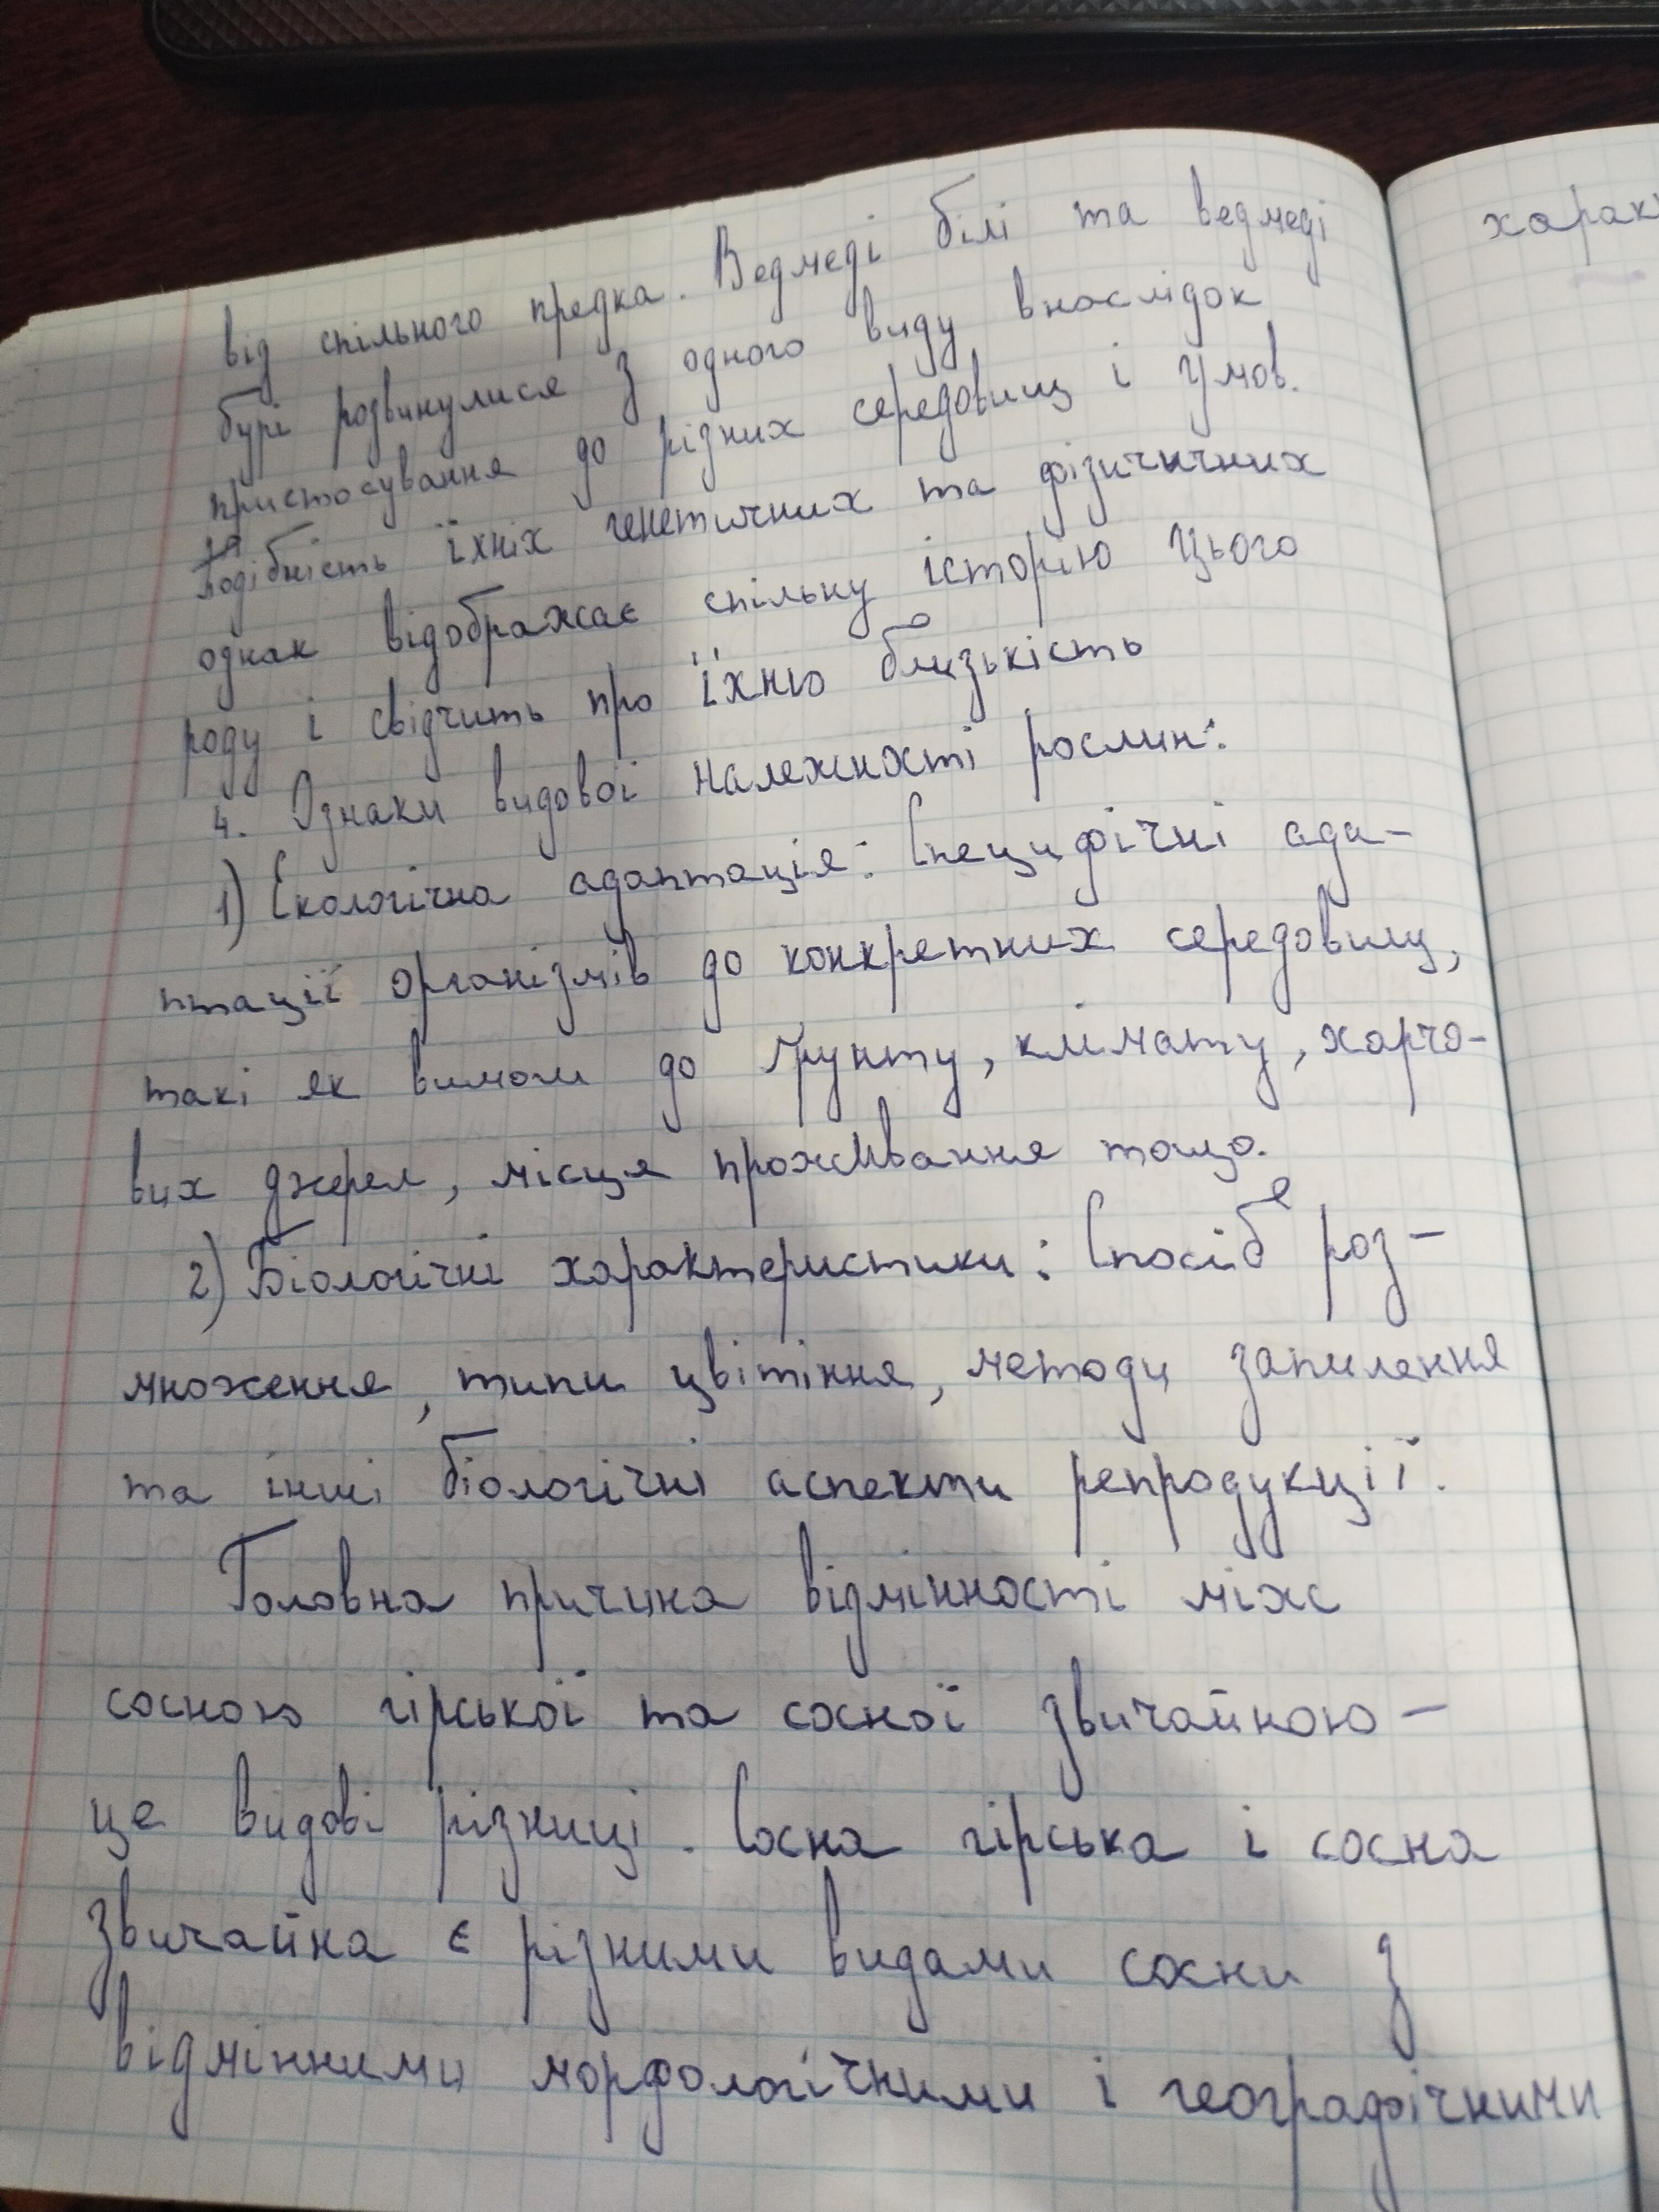 від спільного предка. Ведмеді білі та ведмеді
бурі розвинулися з одного виду внаслідок
пристосування до різних середовищ і умов.
подібність їхніх генетичних та фізичичних
однак відображає спільну історію цього
роду і свідчить про їхню близькість
4. Ознаки видової належності рослин:
1) Екологічна адаптація: Специфічні ада-
птації організмів до конкретних середовищ,
такі як вимоги до ґрунту, клімату, харчо-
вих джерел, місця проживання тощо.
2) Біологічні характеристики: Спосіб роз-
множення, типи цвітіння, методи запилення
та інші біологічні аспекти репродукції.
Головна причина відмінності між
сосною гірської та сосної звичайною-
це видові різниці. Сосна гірська і сосна
звичайна є різними видами сосни з
відмінними морфологічними і географічними
харак